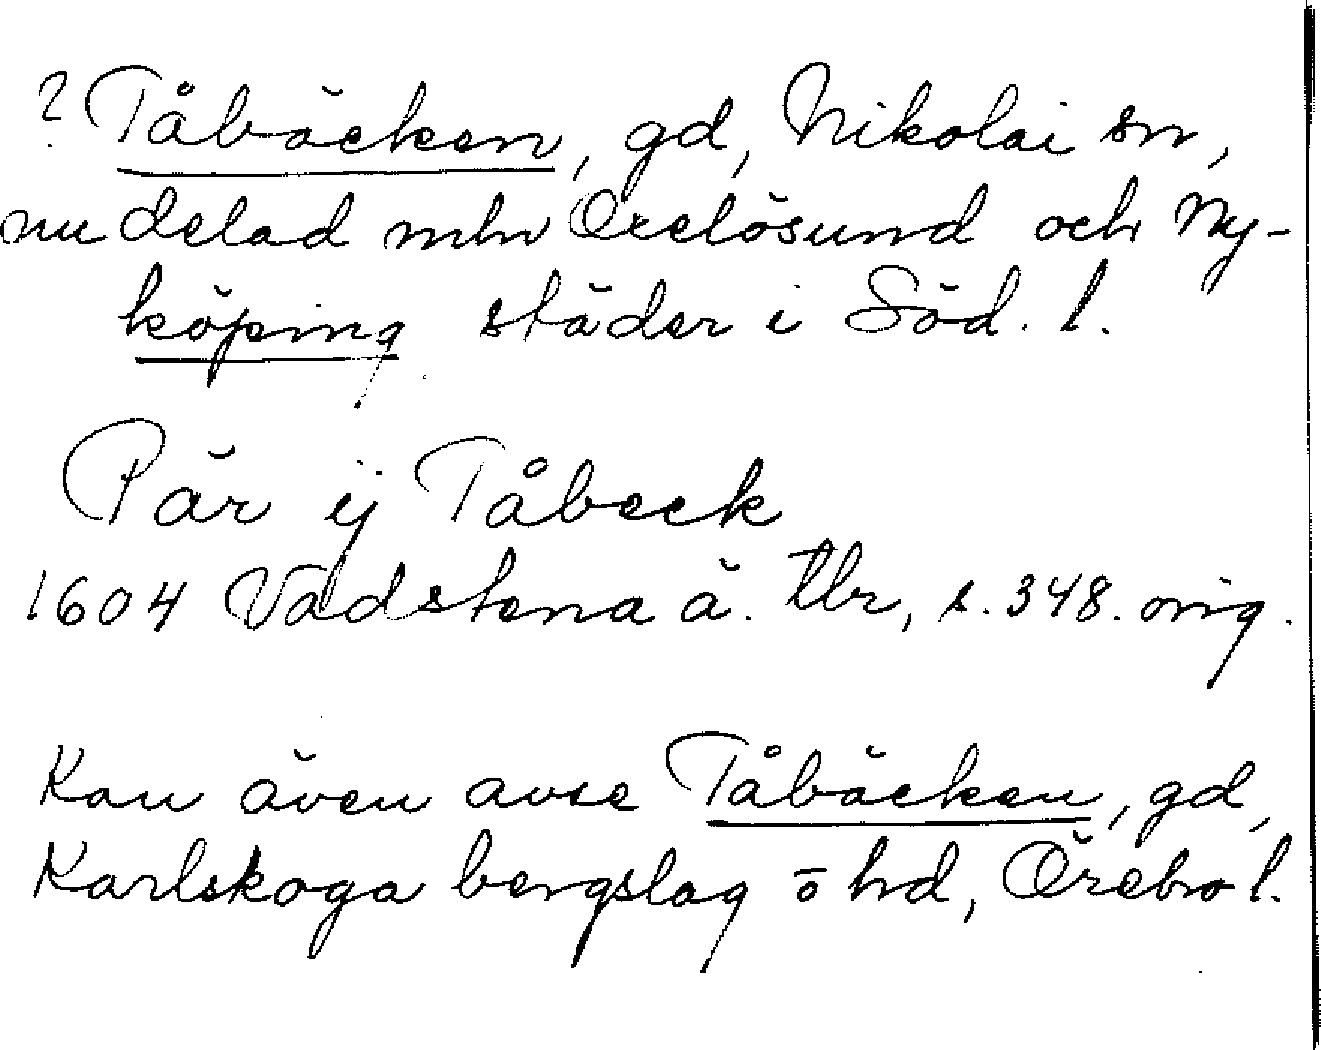 ? Tåbäcken, gd, Nikolai sn,
nu delad mln Oxelösund och Ny-
köping städer i Söd. l.
Pär ij Tåbeck
1604 Vadstena ä. tbr, s. 348. orig.
Kan även avse Tåbäcken, gd,
Karlskoga bergslag ö hd, Örebro l.